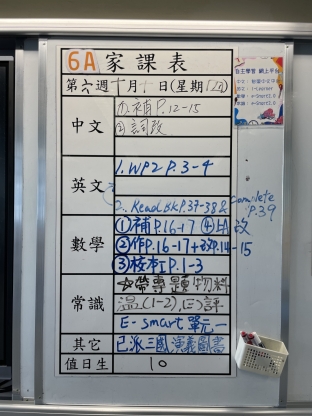 6A 家課表
第六週十月 日(星期四)
中文
補P.12-15
詞改
英文
1. WP2 P.3-4
2. Read BK P.37-38 & complete P.39
數學
①補P.16-17 ④ 改
②作P.16-17+ P.14-15
③校本工P.1-3
常識
☆帶專題物料
溫(1-2),(三)課
E-smart單元一
其它
已派三國演義圖書
值日生
10
自主學習 網上平台